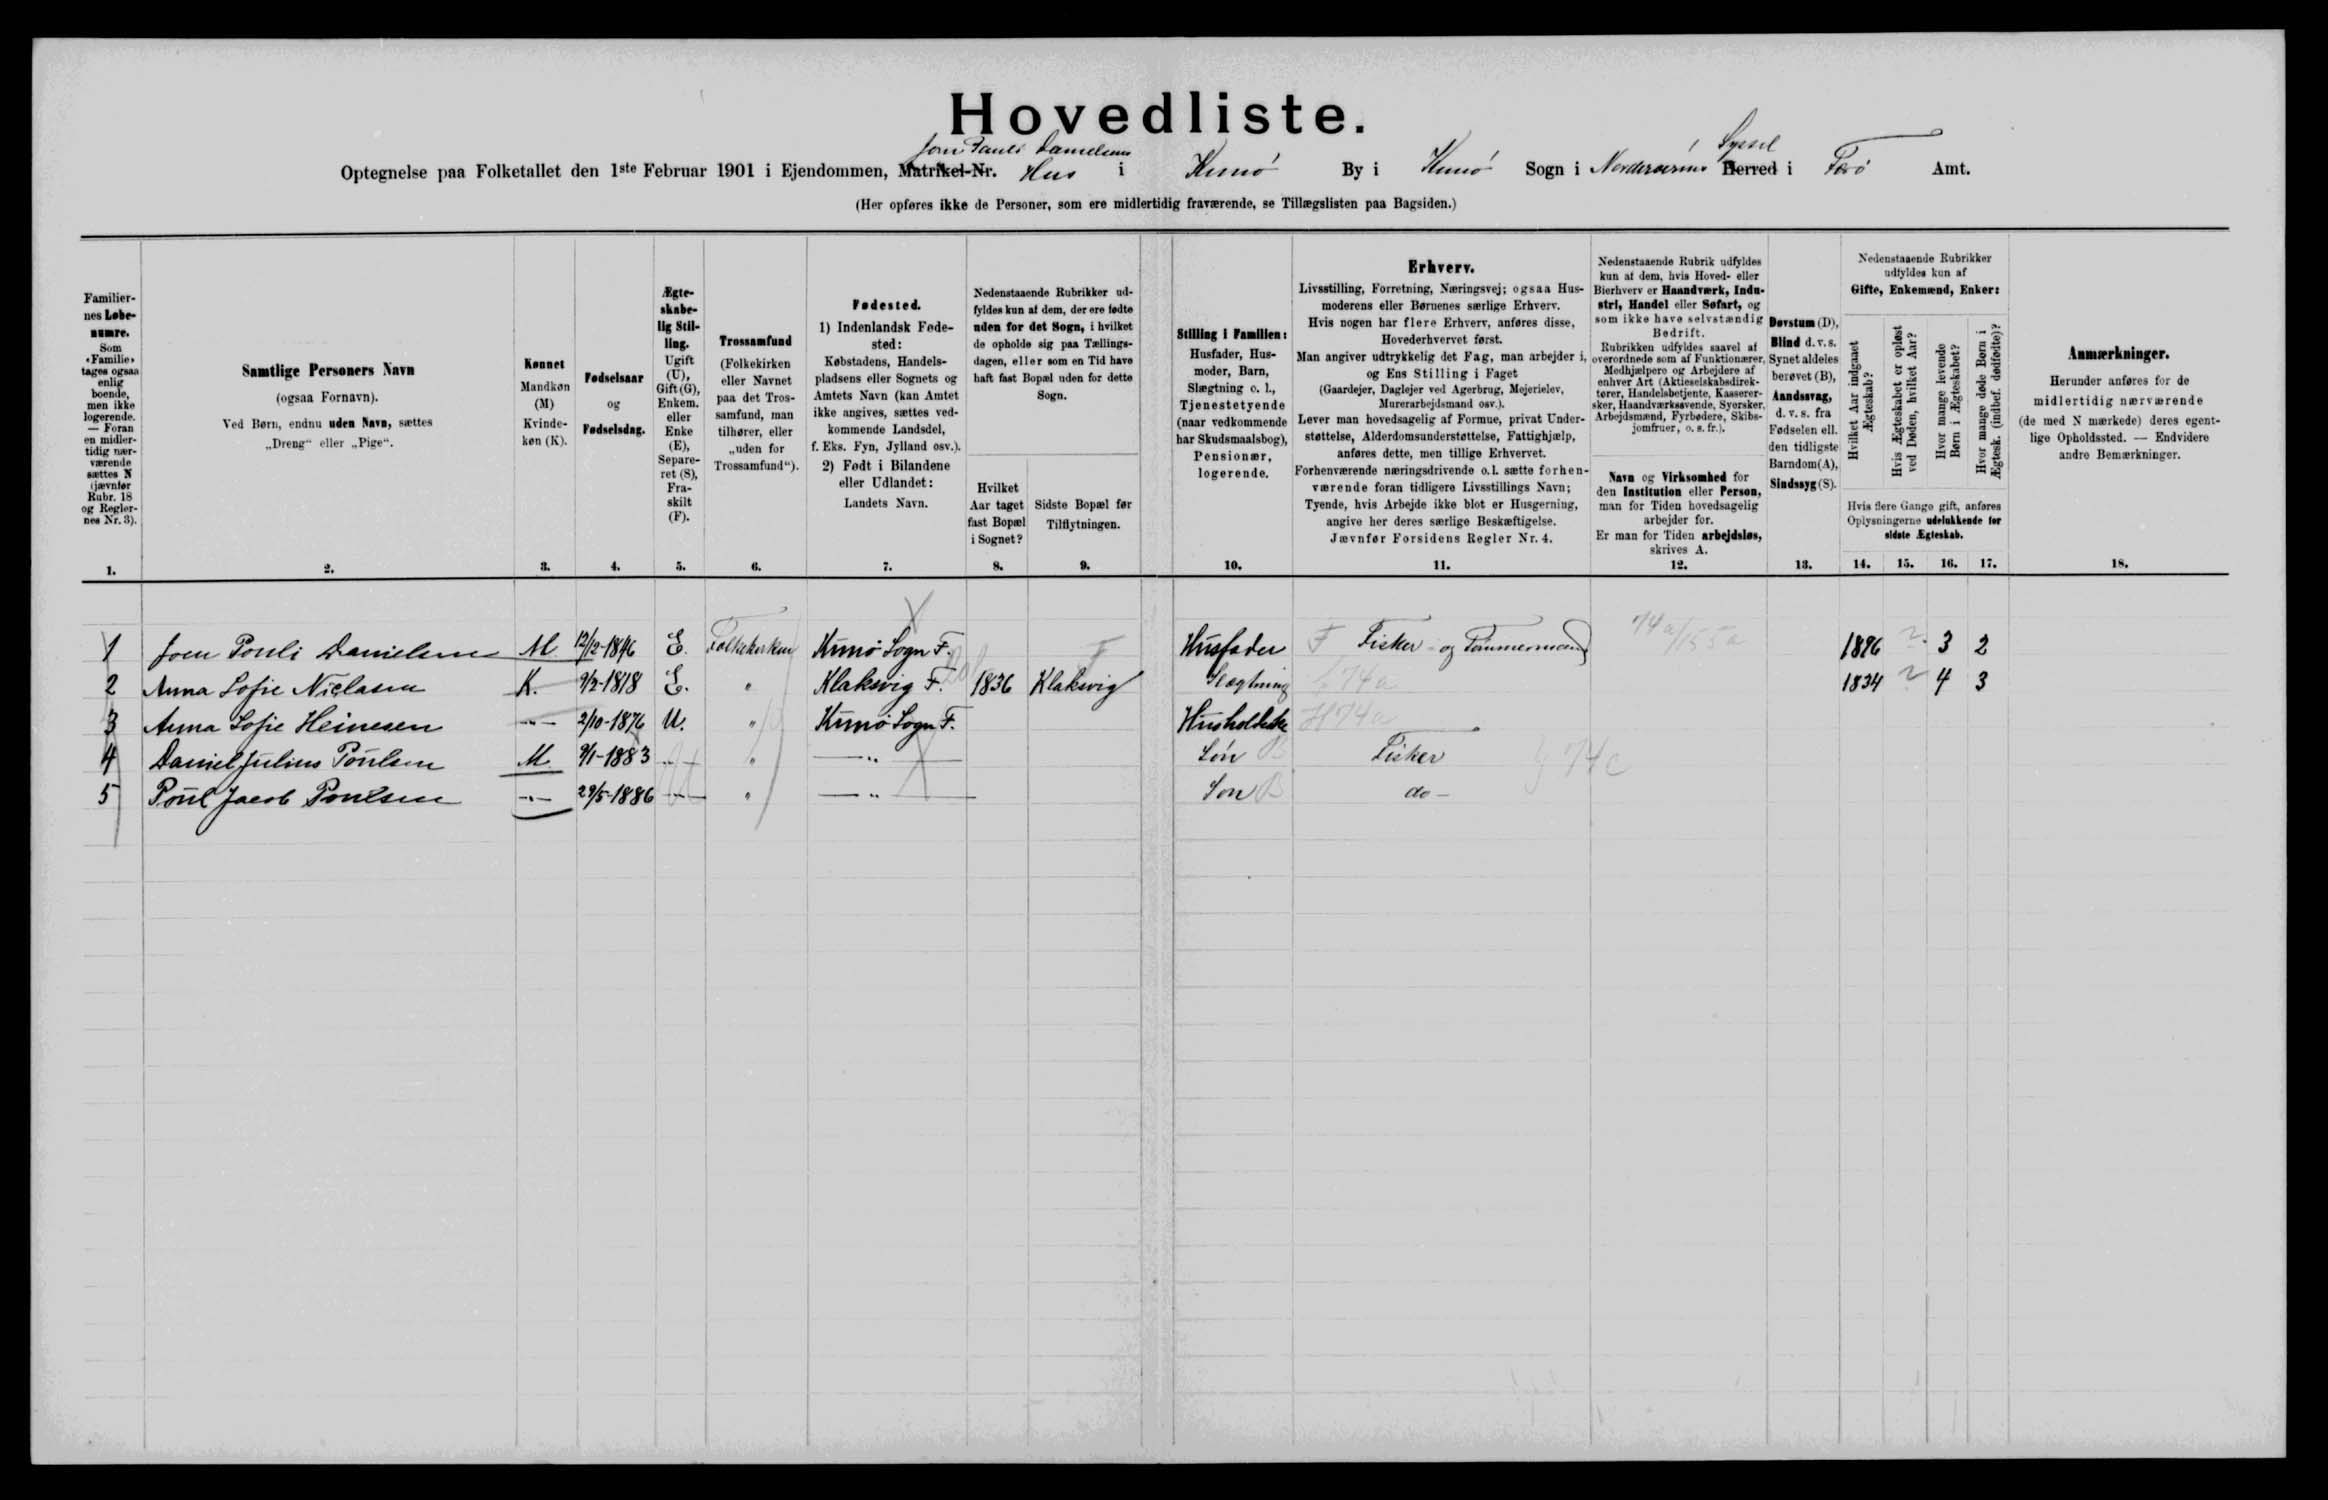 Hovedliste.
Joen Pauli Danielsens Syssel
Optegnelse paa Folketallet den 1ste Februar 1901 i Ejendommen, Matrikel-Nr. Hus i Kunø By i Kunø Sogn i Norderøernes Herred i Færø Amt.
(Her opføres ikke de Personer, som ere midlertidig fraværende, se Tillægslisten paa Bagsiden.)
Familiernes Løbenumre.
Som «Familie» tages ogsaa enlig boende, men ikke logerende. — Foran en midlertidig nærværende sættes N (jævnfør Rubr. 18 og Reglernes Nr. 3).
1.
Samtlige Personers Navn
(ogsaa Fornavn).
Ved Børn, endnu uden Navn, sættes
„Dreng“ eller „Pige“.
2.
Kønnet
Mandkøn (M)
Kvindekøn (K).
3.
Fødselsaar
og
Fødselsdag.
4.
Ægteskabelig Stilling.
Ugift (U), Gift (G), Enkem. eller Enke (E), Separeret (S), Fraskilt (F).
5.
Trossamfund
(Folkekirken eller Navnet paa det Trossamfund, man tilhører, eller „uden for Trossamfund“).
6.
Fødested.
1) Indenlandsk Fødested:
Købstadens, Handelspladsens eller Sognets og Amtets Navn (kan Amtet ikke angives, sættes vedkommende Landsdel, f. Eks. Fyn, Jylland osv.).
2) Født i Bilandene eller Udlandet:
Landets Navn.
7.
Nedenstaaende Rubrikker udfyldes kun af dem, der ere fødte uden for det Sogn, i hvilket de opholde sig paa Tællingsdagen, eller som en Tid have haft fast Bopæl uden for dette Sogn.
Hvilket Aar taget fast Bopæl i Sognet?
8.
Sidste Bopæl før Tilflytningen.
9.
Stilling i Familien:
Husfader, Husmoder, Barn, Slægtning o. l., Tjenestetyende (naar vedkommende har Skudsmaalsbog), Pensionær, logerende.
10.
Erhverv.
Livsstilling, Forretning, Næringsvej; ogsaa Husmoderens eller Børnenes særlige Erhverv.
Hvis nogen har flere Erhverv, anføres disse, Hovederhvervet først.
Man angiver udtrykkelig det Fag, man arbejder i, og Ens Stilling i Faget
(Gaardejer, Daglejer ved Agerbrug, Mejerielev, Murerarbejdsmand osv.).
Lever man hovedsagelig af Formue, privat Understøttelse, Alderdomsunderstøttelse, Fattighjælp, anføres dette, men tillige Erhvervet.
Forhenværende næringsdrivende o. l. sætte forhenværende foran tidligere Livsstillings Navn;
Tyende, hvis Arbejde ikke blot er Husgerning, angive her deres særlige Beskæftigelse.
Jævnfør Forsidens Regler Nr. 4.
11.
Nedenstaaende Rubrik udfyldes kun af dem, hvis Hoved- eller Bierhverv er Haandværk, Industri, Handel eller Søfart, og som ikke have selvstændig Bedrift.
Rubrikken udfyldes saavel af overordnede som af Funktionærer, Medhjælpere og Arbejdere af enhver Art (Aktieselskabsdirektører, Handelsbetjente, Kasserersker, Haandværkssvende, Syersker, Arbejdsmænd, Fyrbødere, Skibsjomfruer, o. s. fr.).
Navn og Virksomhed for den Institution eller Person, man for Tiden hovedsagelig arbejder for.
Er man for Tiden arbejdsløs, skrives A.
12.
Døvstum (D), Blind d. v. s. Synet aldeles berøvet (B), Aandssvag, d. v. s. fra Fødselen ell. den tidligste Barndom (A), Sindssyg (S).
13.
Nedenstaaende Rubrikker udfyldes kun af
Gifte, Enkemænd, Enker:
Hvilket Aar indgaaet Ægteskab?
Hvis Ægteskabet er opløst ved Døden, hvilket Aar?
Hvor mange levende Børn i Ægteskabet?
Hvor mange døde Børn i Ægtesk. (indbef. dødfødte)?
Hvis flere Gange gift, anføres Oplysningerne udelukkende for sidste Ægteskab.
14. 15. 16. 17.
Anmærkninger.
Herunder anføres for de midlertidig nærværende (de med N mærkede) deres egentlige Opholdssted. — Endvidere andre Bemærkninger.
18.
1 Joen Pouli Danielsen M 12/12-1846 E. Folkekirken Kunø Sogn F. Husfader F Fisker og Tømmermand 74a/155a 1876 ? 3 2
2 Anna Sofie Niclasen K. 9/2-1818 E. " Klaksvig F. 1836 Klaksvig Slægtning 74a 1834 ? 4 3
3 Anna Sofie Heinesen -"- 2/10-1876 U. " Kunø Sogn F. Husholderske H 74a
4 Daniel Julius Poulsen M 9/1-1883 -"- " -"- Søn B Fisker 74c
5 Poul Jacob Poulsen -"- 29/5-1886 -"- " -"- Søn B do -